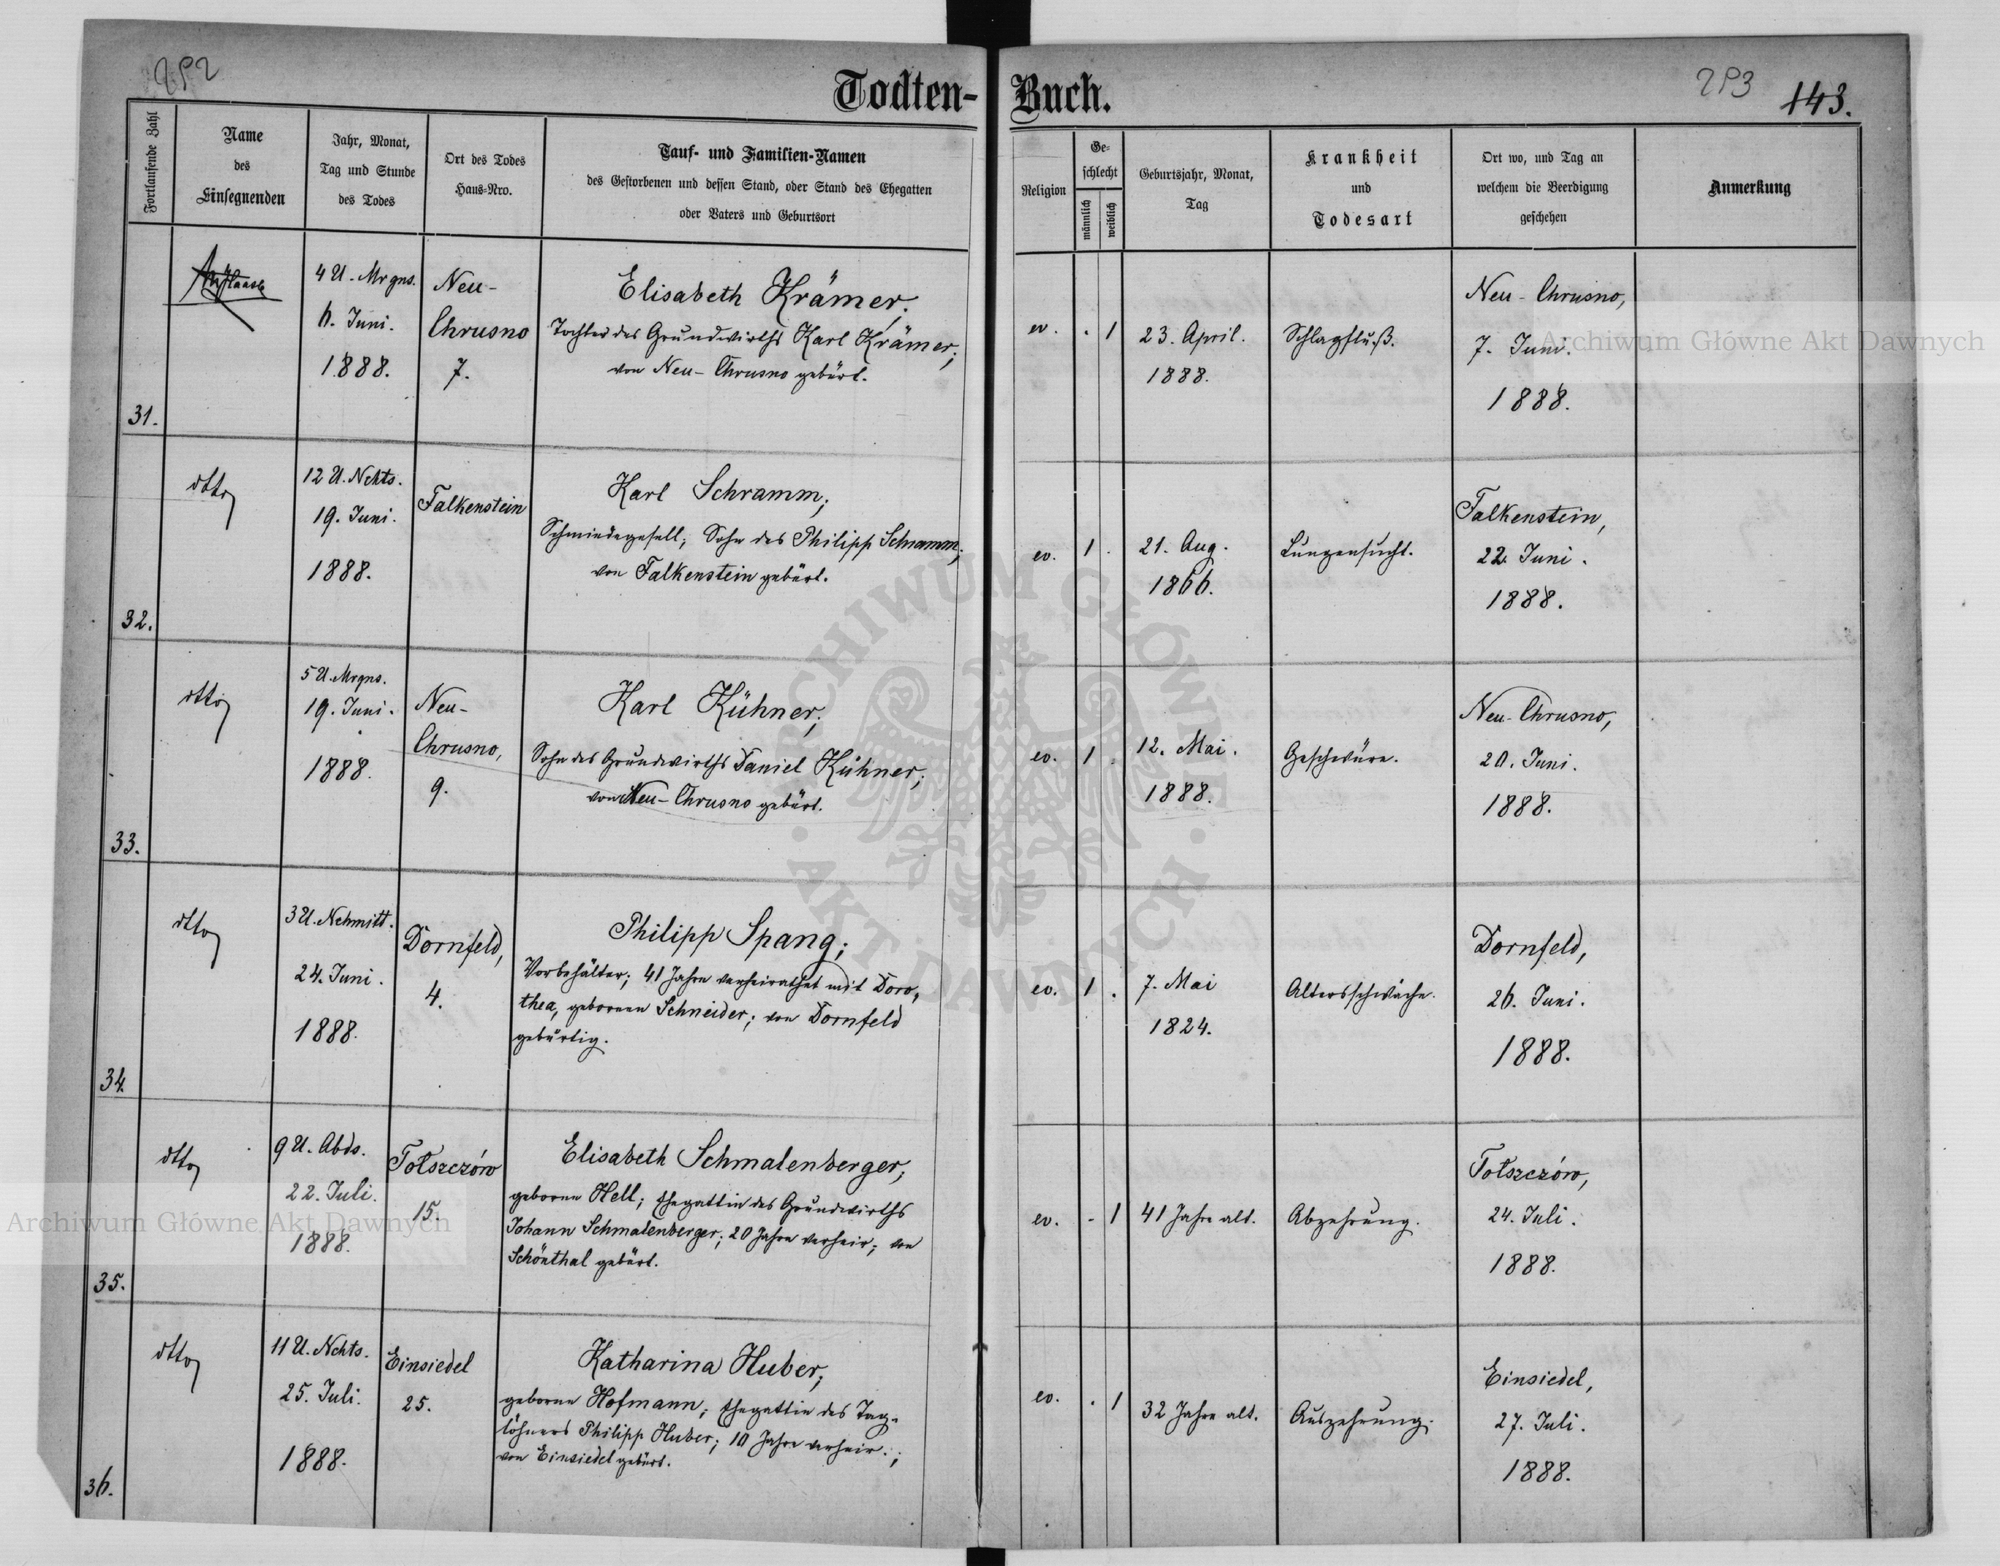 292
Todten-
Buch.
293
143.
Fortlaufende Zahl
Name
des
Einsegnenden
Jahr, Monat,
Tag und Stunde
des Todes
Ort des Todes
Haus-Nro.
Tauf- und Familien-Namen
des Gestorbenen und dessen Stand, oder Stand des Ehegatten
oder Vaters und Geburtsort
Religion
Ge-
schlecht
männlich
weiblich
Geburtsjahr, Monat,
Tag
Krankheit
und
Todesart
Ort wo, und Tag an
welchem die Beerdigung
geschehen
Anmerkung
31.
4 U. Mrgns.
6. Juni.
1888.
Neu-
Chrusno
7.
Elisabeth Krämer,
Tochter des Grundwirths Karl Krämer;
von Neu-Chrusno gebürt.
ev.
. 1
23. April.
1888.
Schlagfluß.
Neu-Chrusno,
7. Juni.
1888.
32.
dtto
12 U. Nchts.
19. Juni.
1888.
Falkenstein
Karl Schramm;
Schmiedegesell; Sohn des Philipp Schramm;
von Falkenstein gebürt.
ev.
1 .
21. Aug.
1866.
Lungensucht.
Falkenstein,
22. Juni.
1888.
33.
dtto
5 U. Mrgns.
19. Juni.
1888.
Neu-
Chrusno,
9.
Karl Kühner;
Sohn des Grundwirths Daniel Kühner;
von Neu-Chrusno gebürt.
ev.
1 .
12. Mai.
1888.
Geschwüre.
Neu-Chrusno,
20. Juni.
1888.
34.
dtto
3 U. Nchmitt.
24. Juni.
1888.
Dornfeld,
4.
Philipp Spang;
Vorbehälter; 41 Jahre verheirathet mit Doro,
thea, geborene Schneider; von Dornfeld
gebürtig.
ev.
1 .
7. Mai
1824.
Altersschwäche.
Dornfeld,
26. Juni.
1888.
35.
dtto
9 U. Abds.
22. Juli.
1888.
Tołszczów
15.
Elisabeth Schmalenberger;
geborne Hell; Ehegattin des Grundwirths
Johann Schmalenberger; 20 Jahre verheir; von
Schönthal gebürt.
ev.
. 1
41 Jahre alt.
Abzehrung.
Tołszczów,
24. Juli.
1888.
36.
dtto
11 U. Nchts.
25. Juli.
1888.
Einsiedel
25.
Katharina Huber;
geborne Hofmann; Ehegattin des Tag-
löhners Philipp Huber; 10 Jahre verheir.;
von Einsiedel gebürt.
ev.
. 1
32 Jahre alt.
Auszehrung.
Einsiedel,
27. Juli.
1888.
Archiwum Główne Akt Dawnych
Archiwum Główne Akt Dawnych
ARCHIWUM GŁÓWNE
· AKT DAWNYCH ·